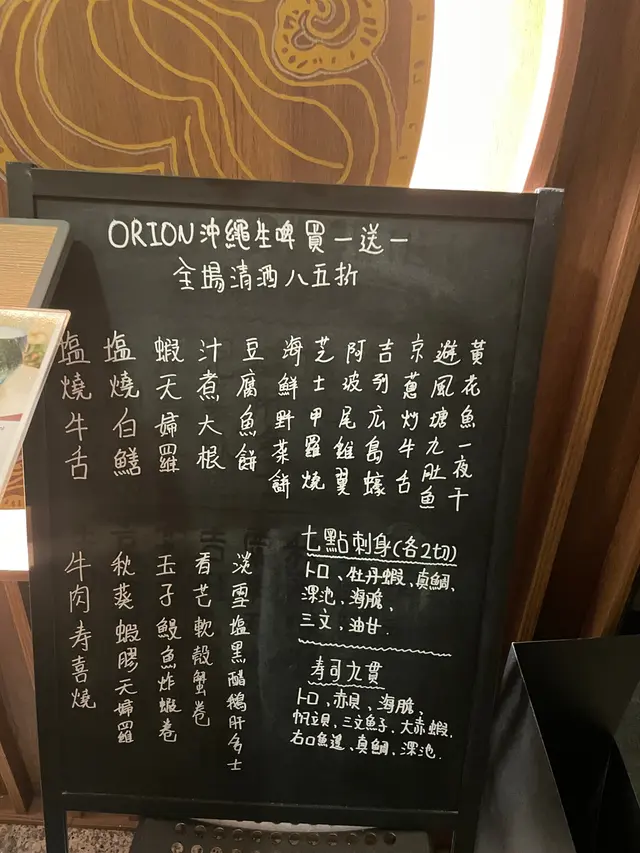 ORION沖繩生啤買一送一
全場清酒八五折
黃花魚一夜干
避風塘九肚魚
京蔥炒牛舌
吉列広島蠔
阿波尾雞翼
芝士甲羅燒
海鮮野菜餅
豆腐魚餅
汁煮大根
蝦天婦羅
塩燒白鱔
塩燒牛舌
七點刺身(各2切)
トロ、牡丹蝦、真鯛、
深池、海膽、
三文、油甘.
寿司九貫
トロ、赤貝、海膽、
帆立貝、三文魚子、大赤蝦、
左口魚邊、真鯛、深池.
淡雪塩黑醋鵝肝多士
香芒軟殼蟹卷
玉子鰻魚炸蝦卷
秋葵蝦膠天婦羅
牛肉寿喜燒